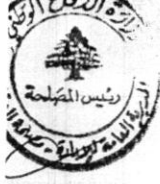 وزارة الدفاع الوطني
رئيس المصلحة
المديرية العامة للإدارة -